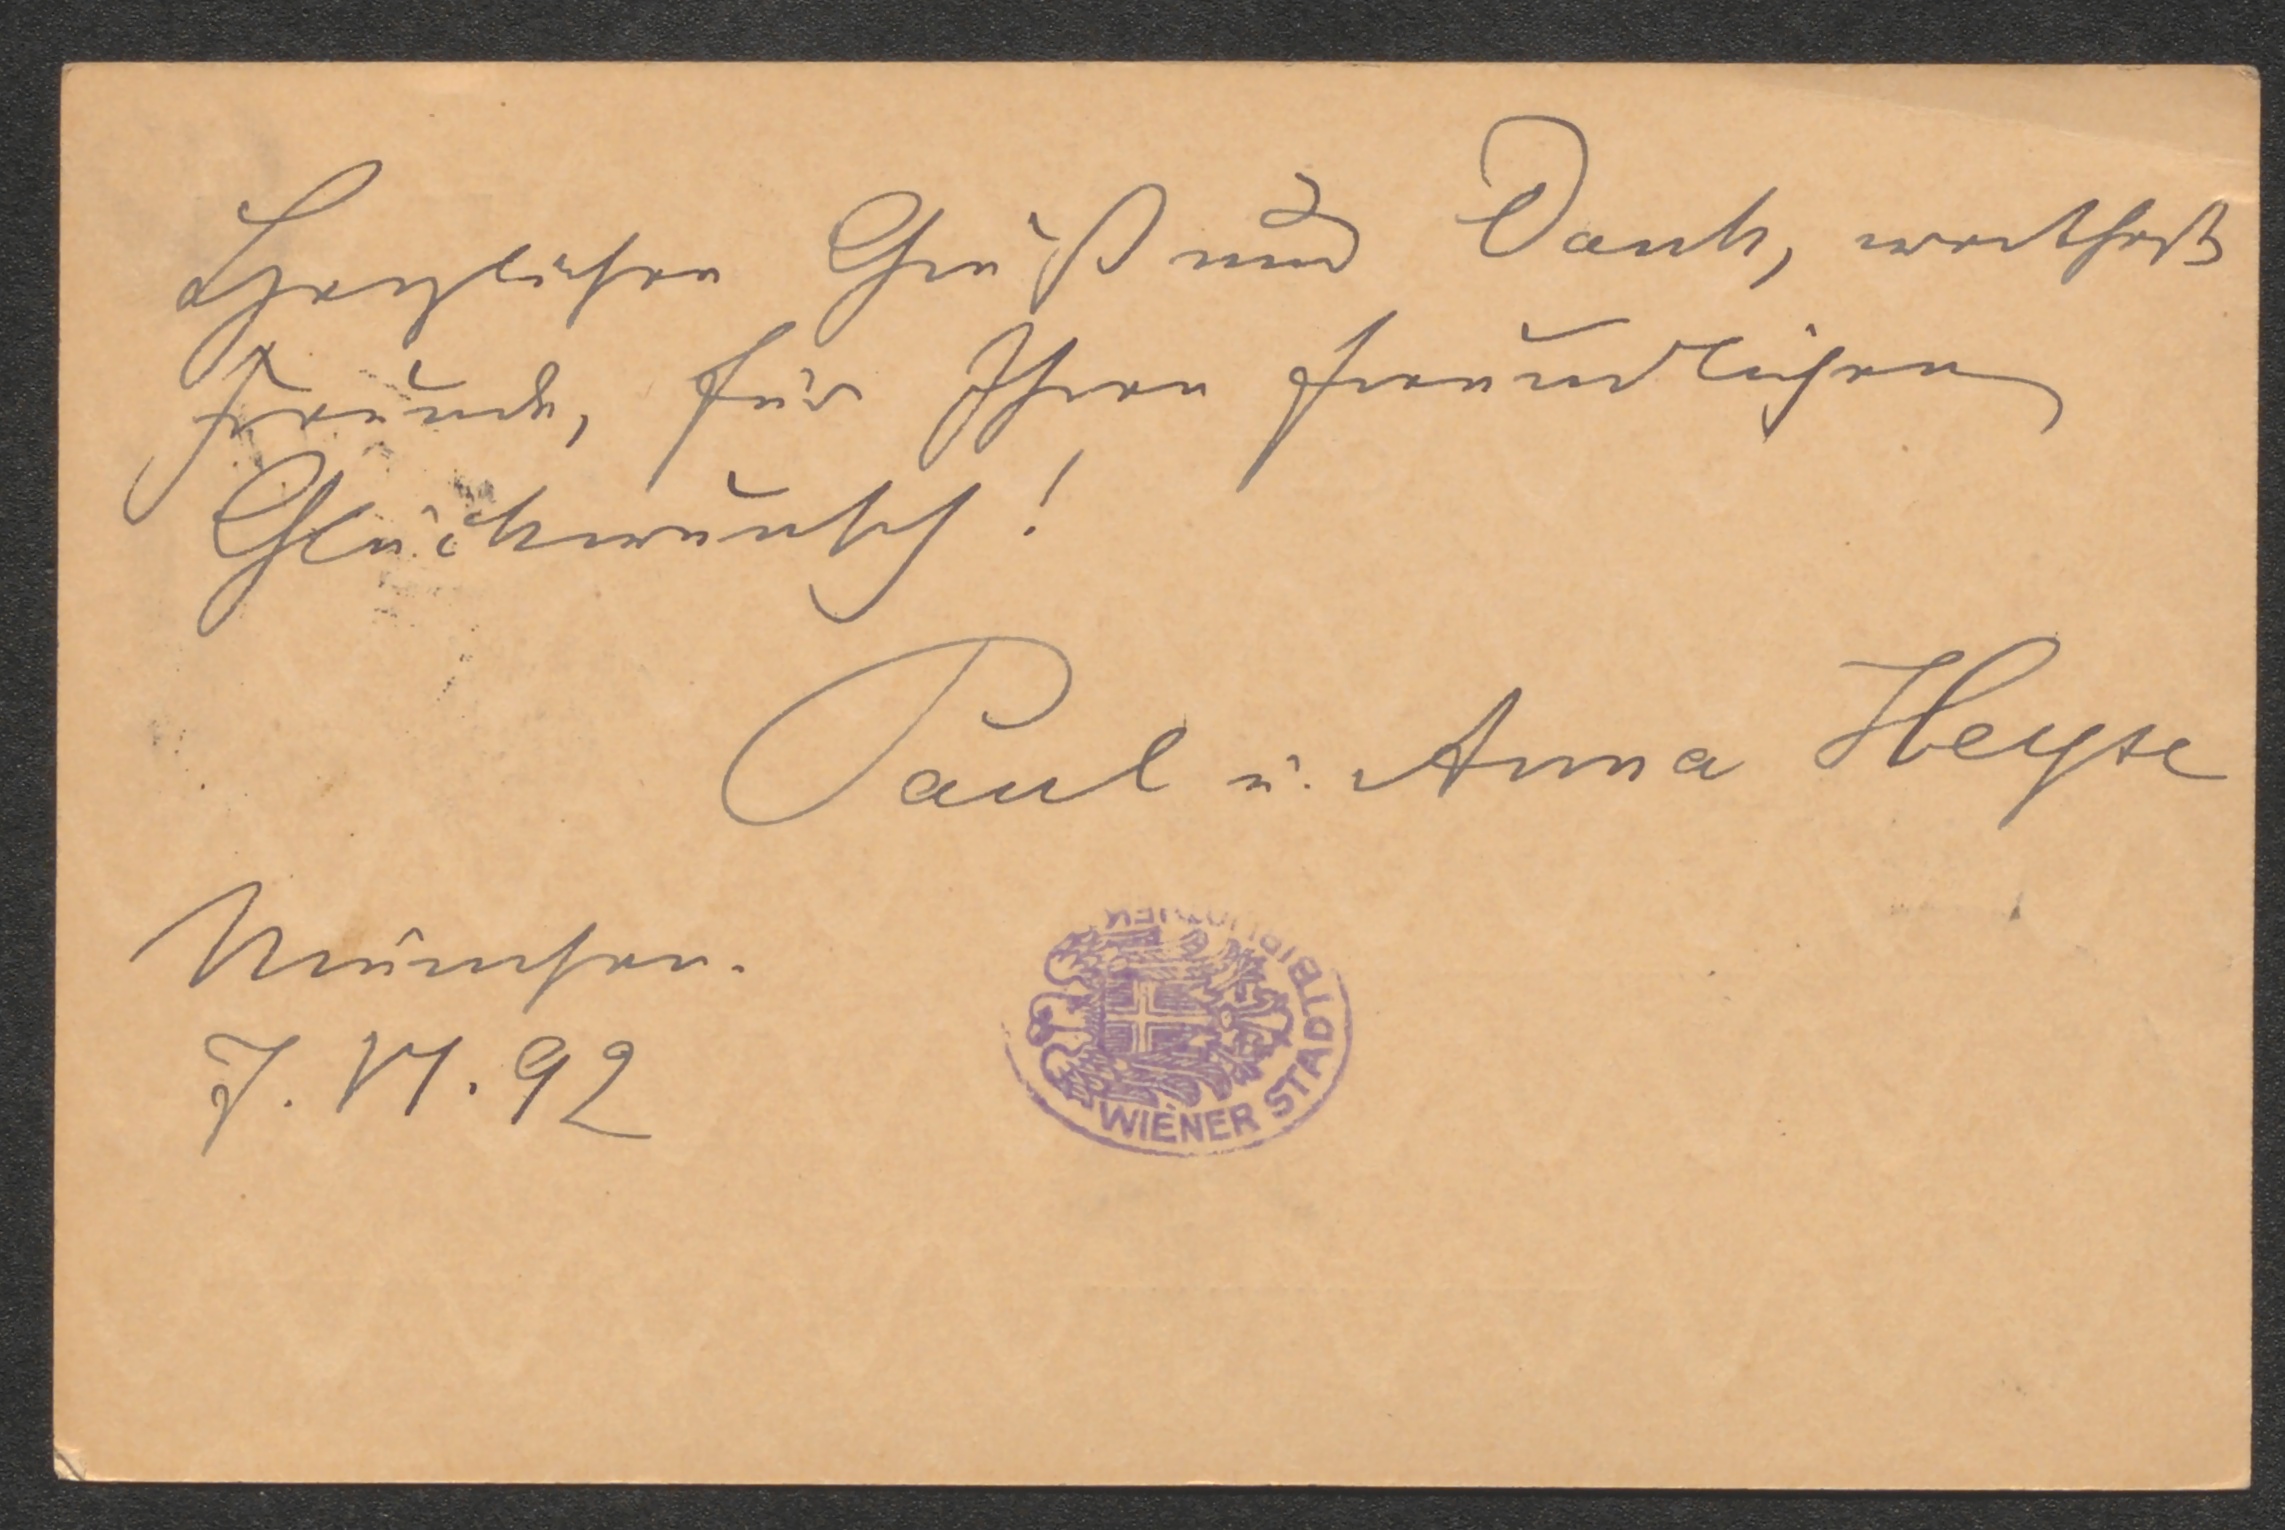 Herzlichen Gruß und Dank, wertheste
Freunde, für Ihren freundlichen
Glückwunsch!
Paul u. Anna Heyse
München.
7. VI. 92
WIENER STADTBIBLIOTHEK